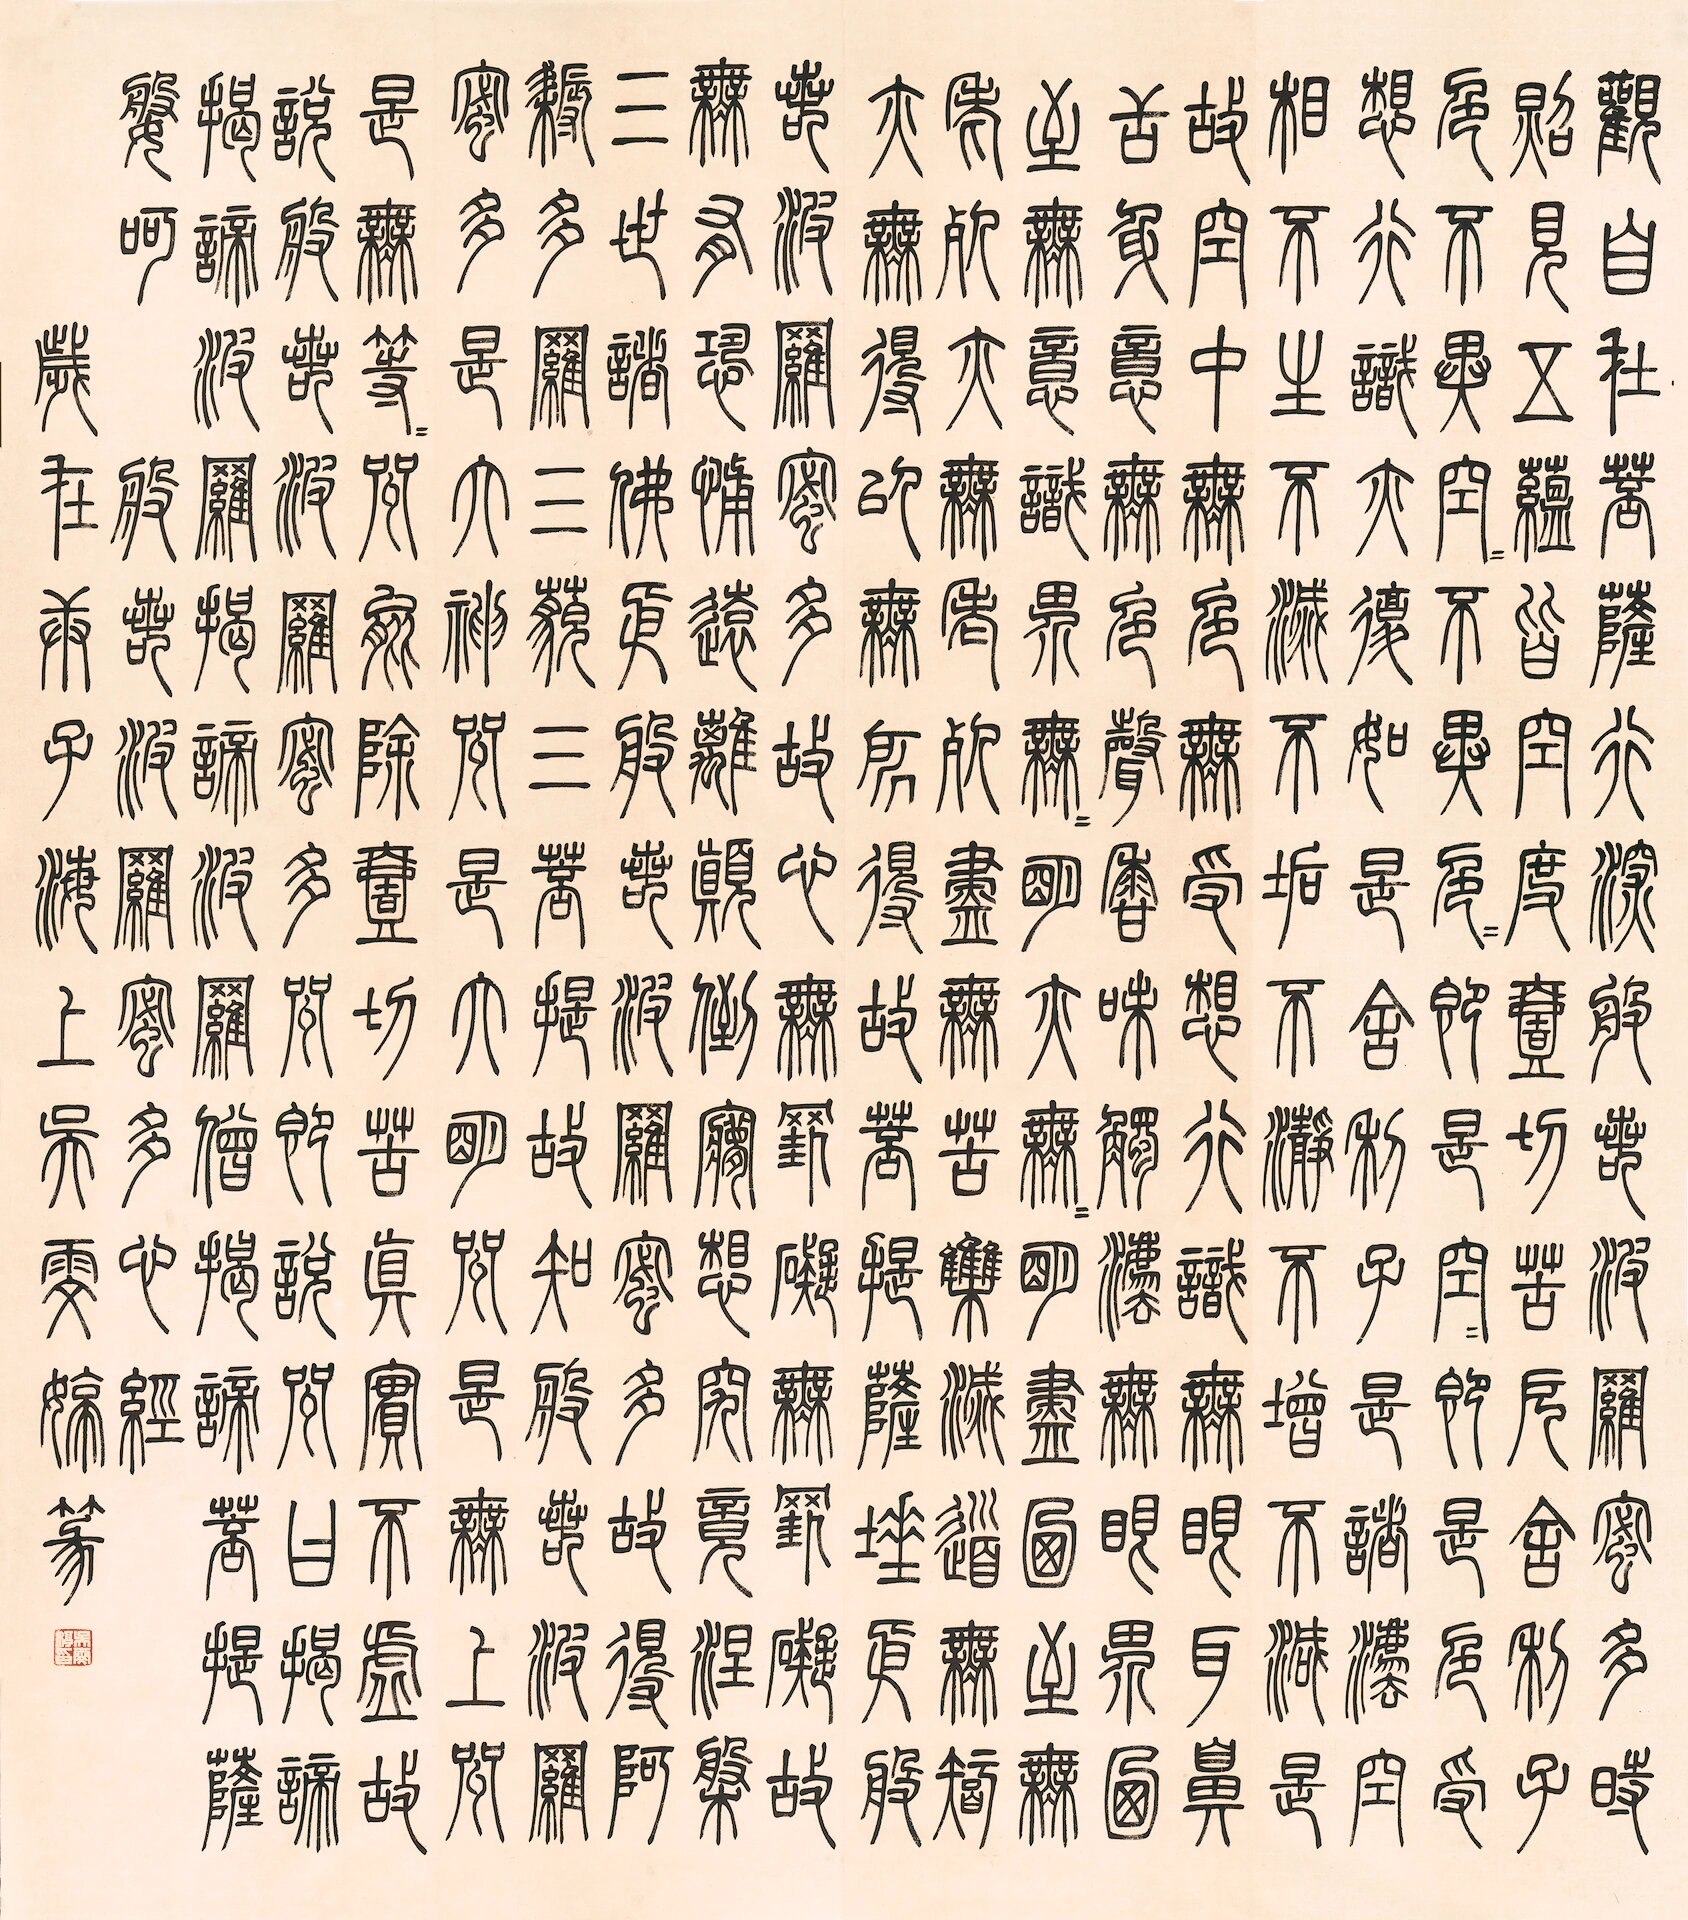 觀自在菩薩行深般若波羅密多時
照見五蘊皆空度壹切苦厄舍利子
色不異空=不異色=即是空=即是色受
想行識亦復如是舍利子是諸法空
相不生不滅不垢不瀞不增不減是
故空中無色無受想行識無眼耳鼻
舌身意無色聲香味觸法無眼界乃
至無意識界無=明亦無=明盡乃至無
老死亦無老死盡無苦集滅道無智
亦無得以無所得故菩提薩埵依般
若波羅密多故心無罣礙無罣礙故
無有恐怖遠離顛倒夢想究竟涅槃
三世諸佛依般若波羅密多故得阿
耨多羅三藐三菩提故知般若波羅
密多是大神咒是大明咒是無上咒
是無等=咒能除壹切苦真實不虛故
說般若波羅密多咒即說咒曰揭諦
揭諦波羅揭諦波羅僧揭諦菩提薩
婆呵 般若波羅密多心經
歲在庚子海上吳雯篆